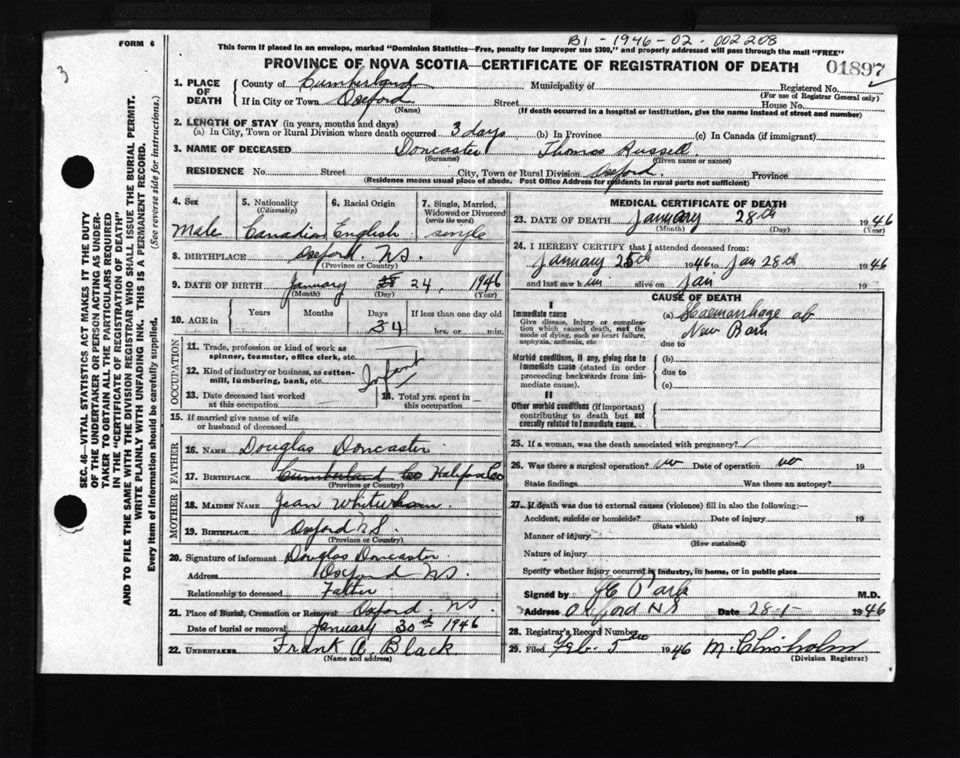 FORM 6
B1-1946-02-002208
This form if placed in an envelope, marked "Dominion Statistics—Free, penalty for improper use $300," and properly addressed will pass through the mail "FREE"
PROVINCE OF NOVA SCOTIA—CERTIFICATE OF REGISTRATION OF DEATH
01897
3
1. PLACE OF DEATH
County of Cumberland Municipality of Registered No.
(For use of Registrar General only)
If in City or Town Oxford Street House No.
(Name) (If death occurred in a hospital or institution, give the name instead of street and number)
2. LENGTH OF STAY (in years, months and days)
(a) In City, Town or Rural Division where death occurred 3 days (b) In Province (c) In Canada (if immigrant)
3. NAME OF DECEASED Doncaster Thomas Russell.
(Surname) (Given name or names)
RESIDENCE No. Street City, Town or Rural Division Oxford. Province
(Residence means usual place of abode. Post Office Address for residents in rural parts not sufficient)
4. Sex
Male
5. Nationality
(Citizenship)
Canadian
6. Racial Origin
English
7. Single, Married, Widowed or Divorced
(write the word)
single
8. BIRTHPLACE Oxford. N.S.
(Province or Country)
9. DATE OF BIRTH January 24, 1946
(Month) (Day) (Year)
10. AGE in
Years Months Days If less than one day old
hrs. or min.
11. Trade, profession or kind of work as spinner, teamster, office clerk, etc.
12. Kind of industry or business, as cotton-mill, lumbering, bank, etc.
Infant
13. Date deceased last worked at this occupation
14. Total yrs. spent in this occupation
OCCUPATION
15. If married give name of wife or husband of deceased
FATHER
16. NAME Douglas Doncaster
17. BIRTHPLACE Cumberland Co Halifax Co
(Province or Country)
MOTHER
18. MAIDEN NAME Jean
19. BIRTHPLACE Oxford N.S.
(Province or Country)
20. Signature of informant Douglas Doncaster.
Address Oxford N.S.
Relationship to deceased Father
21. Place of Burial, Cremation or Removal Oxford. N.S.
Date of burial or removal January 30th 1946
22. UNDERTAKER Frank A. Black
(Name and address)
MEDICAL CERTIFICATE OF DEATH
23. DATE OF DEATH January 28th 1946
(Month) (Day) (Year)
24. I HEREBY CERTIFY that I attended deceased from:
January 25th 1946 to Jan 28th 1946
and last saw him alive on Jan 19
CAUSE OF DEATH
I
Immediate cause
Give disease, injury or complication which caused death, not the mode of dying, such as heart failure, asphyxia, asthenia, etc
(a) Haemorrhage of
New Born
due to
Morbid conditions, if any, giving rise to immediate cause (stated in order proceeding backwards from immediate cause).
(b)
due to
(c)
II
Other morbid conditions (if important) contributing to death but not causally related to immediate cause.
25. If a woman, was the death associated with pregnancy?
26. Was there a surgical operation? no Date of operation no 19
State findings Was there an autopsy?
27. If death was due to external causes (violence) fill in also the following:—
Accident, suicide or homicide? Date of injury 19
(State which)
Manner of injury
(How sustained)
Nature of injury
Specify whether injury occurred in industry, in home, or in public place
Signed by M.D.
Address Oxford N.S. Date 28-1- 1946
28. Registrar's Record Number
29. Filed Feb. 5 1946 M. Chisholm
(Division Registrar)
SEC. 46—VITAL STATISTICS ACT MAKES IT THE DUTY
OF THE UNDERTAKER OR PERSON ACTING AS UNDER-
TAKER TO OBTAIN ALL THE PARTICULARS REQUIRED
IN THE "CERTIFICATE OF REGISTRATION OF DEATH"
AND TO FILE THE SAME WITH THE DIVISION REGISTRAR WHO SHALL ISSUE THE BURIAL PERMIT.
WRITE PLAINLY WITH UNFADING INK. THIS IS A PERMANENT RECORD.
Every item of information should be carefully supplied. (See reverse side for instructions.)